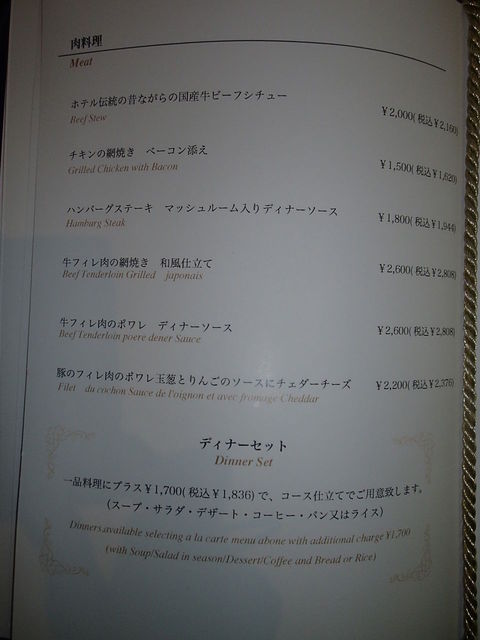 肉料理
Meat
ホテル伝統の昔ながらの国産牛ビーフシチュー
Beef Stew
¥2,000(税込¥2,160)
チキンの網焼き　ベーコン添え
Grilled Chicken with Bacon
¥1,500(税込¥1,620)
ハンバーグステーキ　マッシュルーム入りディナーソース
Hamburg Steak
¥1,800(税込¥1,944)
牛フィレ肉の網焼き　和風仕立て
Beef Tenderloin Grilled　japonais
¥2,600(税込¥2,808)
牛フィレ肉のポワレ　ディナーソース
Beef Tenderloin poere dener Sauce
¥2,600(税込¥2,808)
豚のフィレ肉のポワレ玉葱とりんごのソースにチェダーチーズ
Filet　du cochon Sauce de l'oignon et avec fromage Cheddar
¥2,200(税込¥2,376)
ディナーセット
Dinner Set
一品料理にプラス¥1,700(税込¥1,836)で、コース仕立てでご用意致します。
(スープ・サラダ・デザート・コーヒー・パン又はライス)
Dinners,available selecting a la carte menu abone with additional charge ¥1,700
(with Soup/Salad in season/Dessert/Coffee and Bread or Rice)